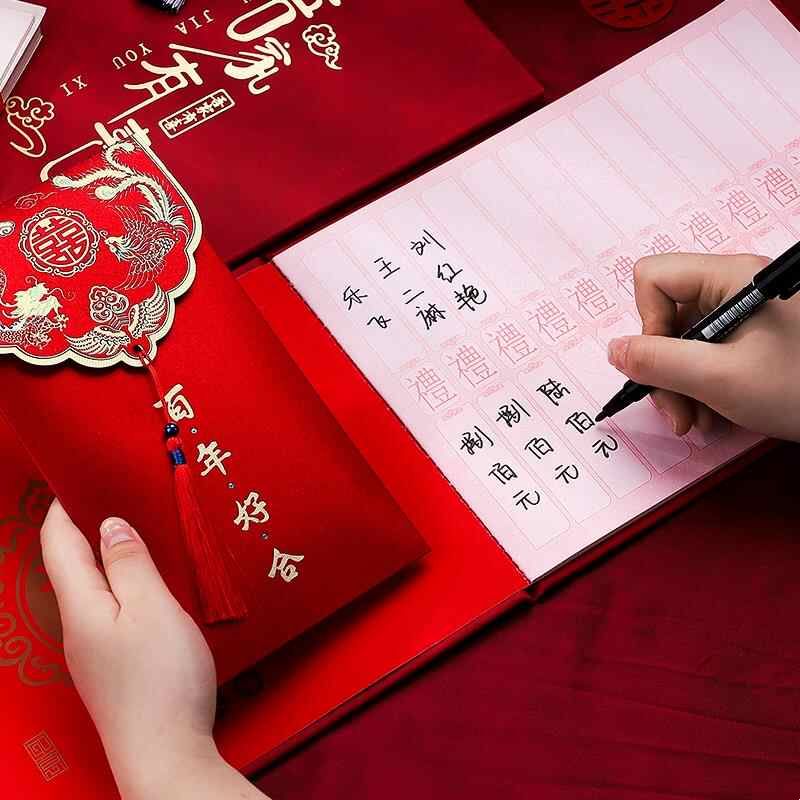 吾家有喜
JIA YOU XI
吾家有喜
囍
百年好合
乐飞
王二麻
刘红艳
禮 禮 禮 禮 禮 禮 禮 禮 禮 禮 禮
捌佰元
捌佰元
陆佰元